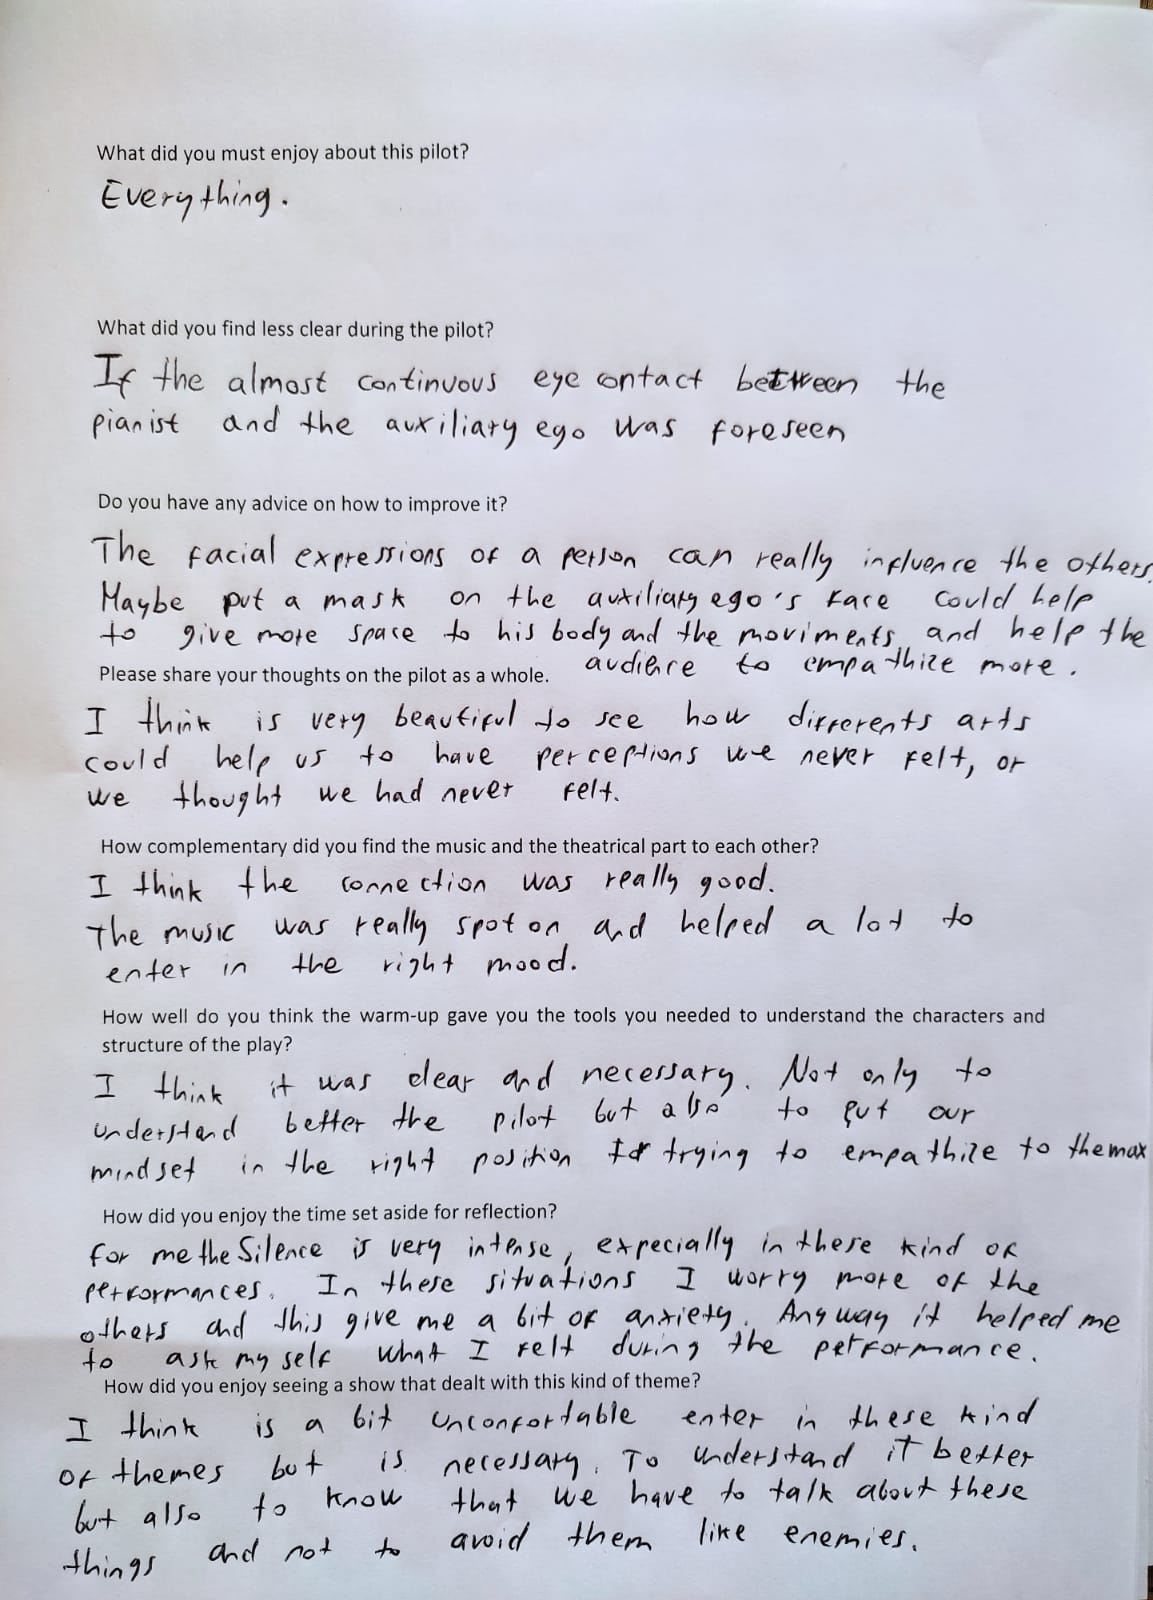 What did you must enjoy about this pilot?
Everything.
What did you find less clear during the pilot?
If the almost continuous eye contact between the
pianist and the auxiliary ego was foreseen
Do you have any advice on how to improve it?
The facial expressions of a person can really influence the others.
Maybe put a mask on the auxiliary ego's face could help
to give more space to his body and the moviments, and help the
audience to empathize more.
Please share your thoughts on the pilot as a whole.
I think is very beautiful to see how differents arts
could help us to have perceptions we never felt, or
we thought we had never felt.
How complementary did you find the music and the theatrical part to each other?
I think the connection was really good.
The music was really spot on and helped a lot to
enter in the right mood.
How well do you think the warm-up gave you the tools you needed to understand the characters and
structure of the play?
I think it was clear and necessary. Not only to
understand better the pilot but also to put our
mindset in the right position trying to empathize to the max
How did you enjoy the time set aside for reflection?
For me the Silence is very intense, expecially in these kind of
performances. In these situations I worry more of the
others and this give me a bit of anxiety. Anyway it helped me
to ask my self what I felt during the performance.
How did you enjoy seeing a show that dealt with this kind of theme?
I think is a bit unconfortable enter in these kind
of themes but is necessary. To understand it better
but also to know that we have to talk about these
things and not to avoid them like enemies.